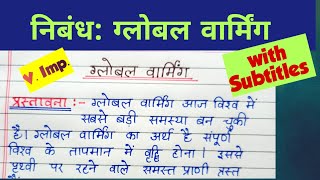 निबंध: ग्लोबल वार्मिंग
with
Subtitles
V. Imp.
ग्लोबल वार्मिंग
प्रस्तावना :- ग्लोबल वार्मिंग आज विश्व में
सबसे बड़ी समस्या बन चुकी
है। ग्लोबल वार्मिंग का अर्थ है संपूर्ण
विश्व के तापमान में वृद्धि होना। इससे
पृथ्वी पर रहने वाले समस्त प्राणी त्रस्त